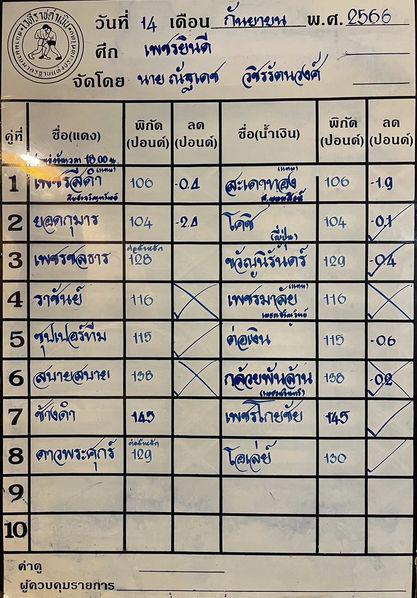 วันที่ 14 เดือน กันยายน พ.ศ. 2566
ศึก เพชรยินดี
จัดโดย นาย ณัฐเดช วชิรรัตนวงศ์
คู่ที่ ชื่อ(แดง) พิกัด (ปอนด์) ลด (ปอนด์) ชื่อ(น้ำเงิน) พิกัด (ปอนด์) ลด (ปอนด์)
18.00 น.
1 เพชรสีดำ 106 -0.4 สะเดาทอง (แทน) 106 -1.9
2 ยอดกุมาร 104 -2.4 โคชิ (ญี่ปุ่น) 104 -0.1
3 เพชรชลธาร ต่อน้ำหนัก 128 ขวัญนิรันดร์ 129 -0.4
4 ราชันย์ 116 เพชรมาลัย (แทน) 116
5 ซุปเปอร์ทีม 115 ต่อเงิน 115 -0.6
6 สบายสบาย 138 กล้วยพันล้าน 138 -0.2
7 ช้างดำ 145 เพชรโกยชัย 145
8 ดาวพระศุกร์ ต่อน้ำหนัก 129 โอเล่ย์ 130
9
10
ค่าดู
ผู้ควบคุมรายการ